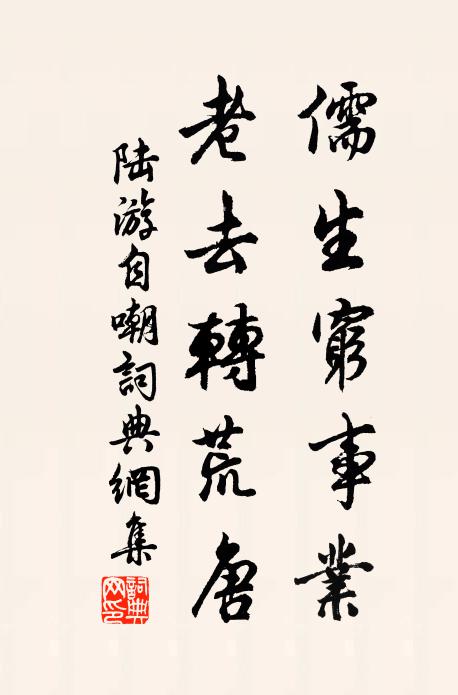 儒生窮事業
老去轉荒唐
陸游自嘲詞典網集
詞典網印